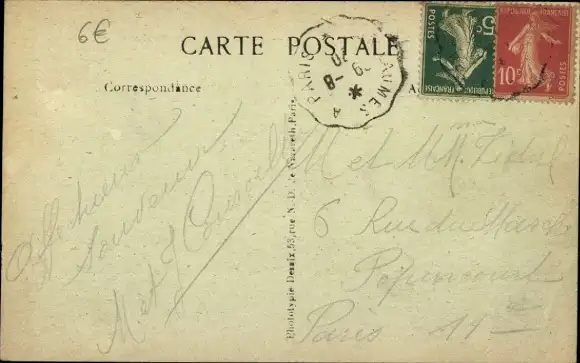 6€
CARTE POSTALE
Correspondance
PARIS A
AUMES
8-
9
POSTES
5c
REPUBLIQUE FRANÇAISE
10c
POSTES
Affectueux
souvenir
M et J
Phototypie Desaix, 53, rue N. D. de Nazareth, Paris
M et Mme Vidal
6 Rue du Marché
Popincourt
Paris 11e